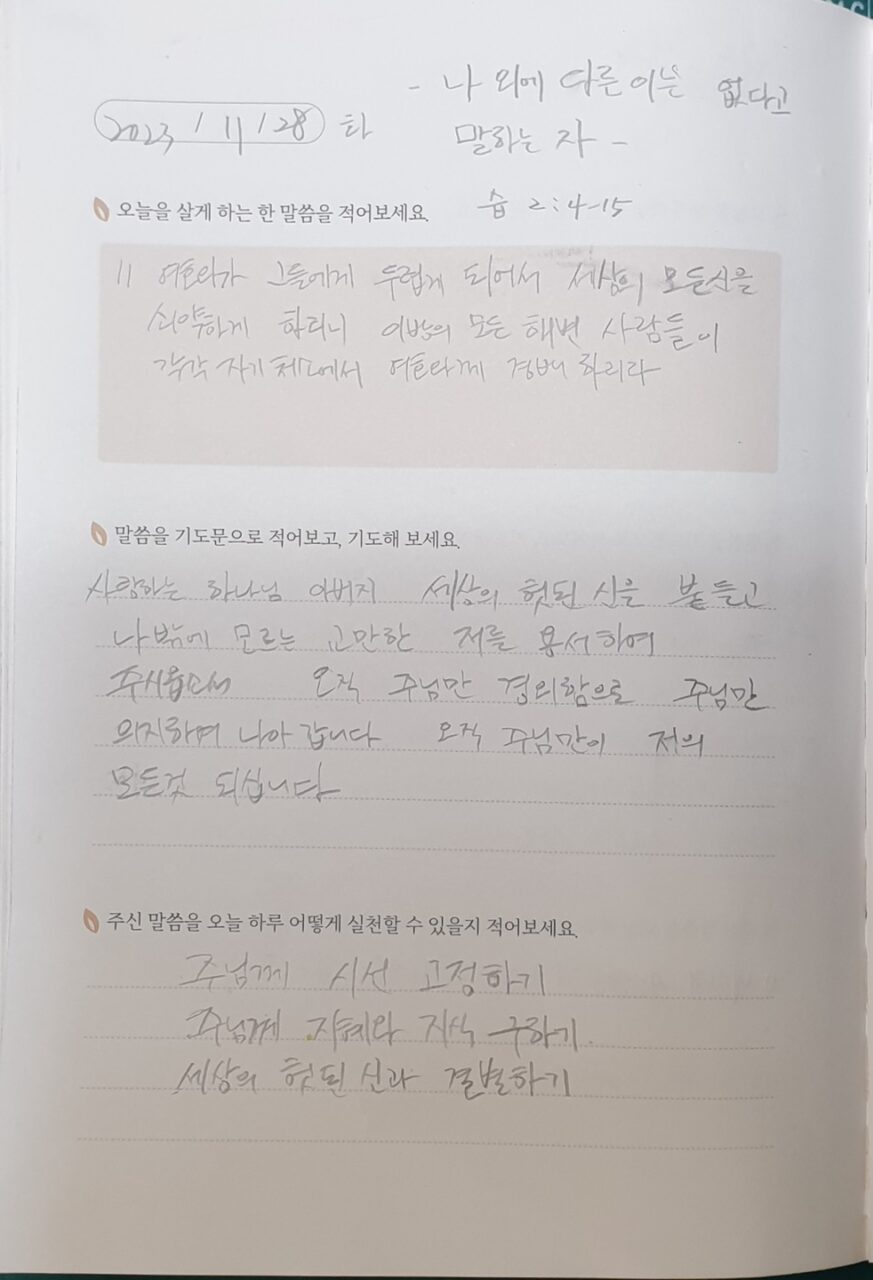 - 나 외에 다른 이는 없다고
2023 / 11 / 28 화
말하는 자 -
오늘을 살게 하는 한 말씀을 적어보세요.
습 2:4-15
11 여호와가 그들에게 두렵게 되어서 세상의 모든신을
쇠약하게 하리니 이방의 모든 해변 사람들이
각각 자기 처소에서 여호와께 경배 하리라
말씀을 기도문으로 적어보고, 기도해 보세요.
사랑하는 하나님 아버지 세상의 헛된 신을 붙들고
나밖에 모르는 교만한 저를 용서하여
주시옵소서 오직 주님만 경외함으로 주님만
의지하며 나아 갑니다 오직 주님만이 저의
모든것 되십니다
주신 말씀을 오늘 하루 어떻게 실천할 수 있을지 적어보세요.
주님께 시선 고정하기
주님께 지혜와 지식 구하기.
세상의 헛된 신과 결별하기